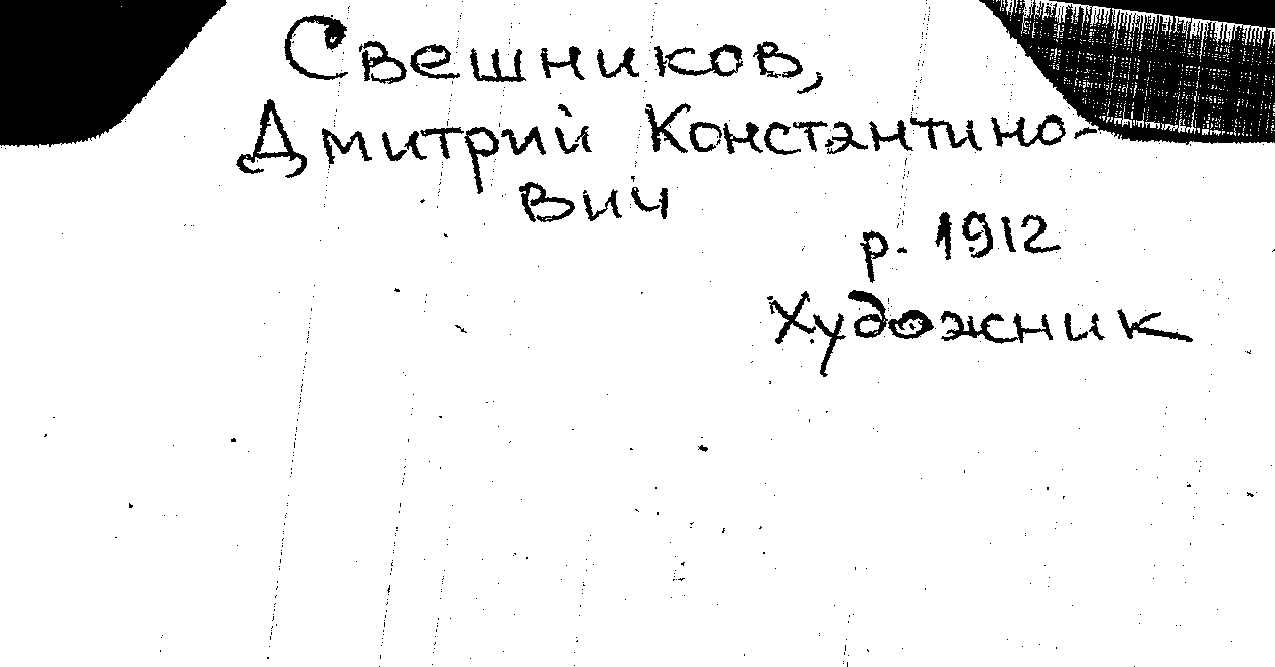 Свешников,
Дмитрий Константино-
вич
р. 1912
Художник